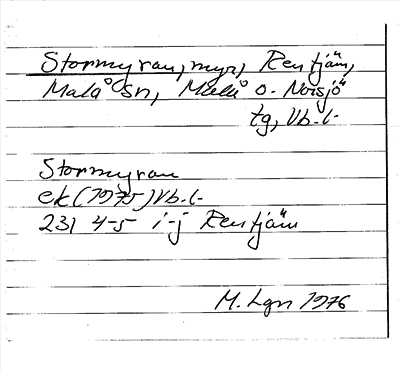 Stormyran, myr, Rentjärn,
Malå sn, Malå o. Norsjö
tg, Vb.l.
Stormyran
ek (1975) Vb.l.
23I 4-5 i-j Rentjärn
M. Lgn 1976